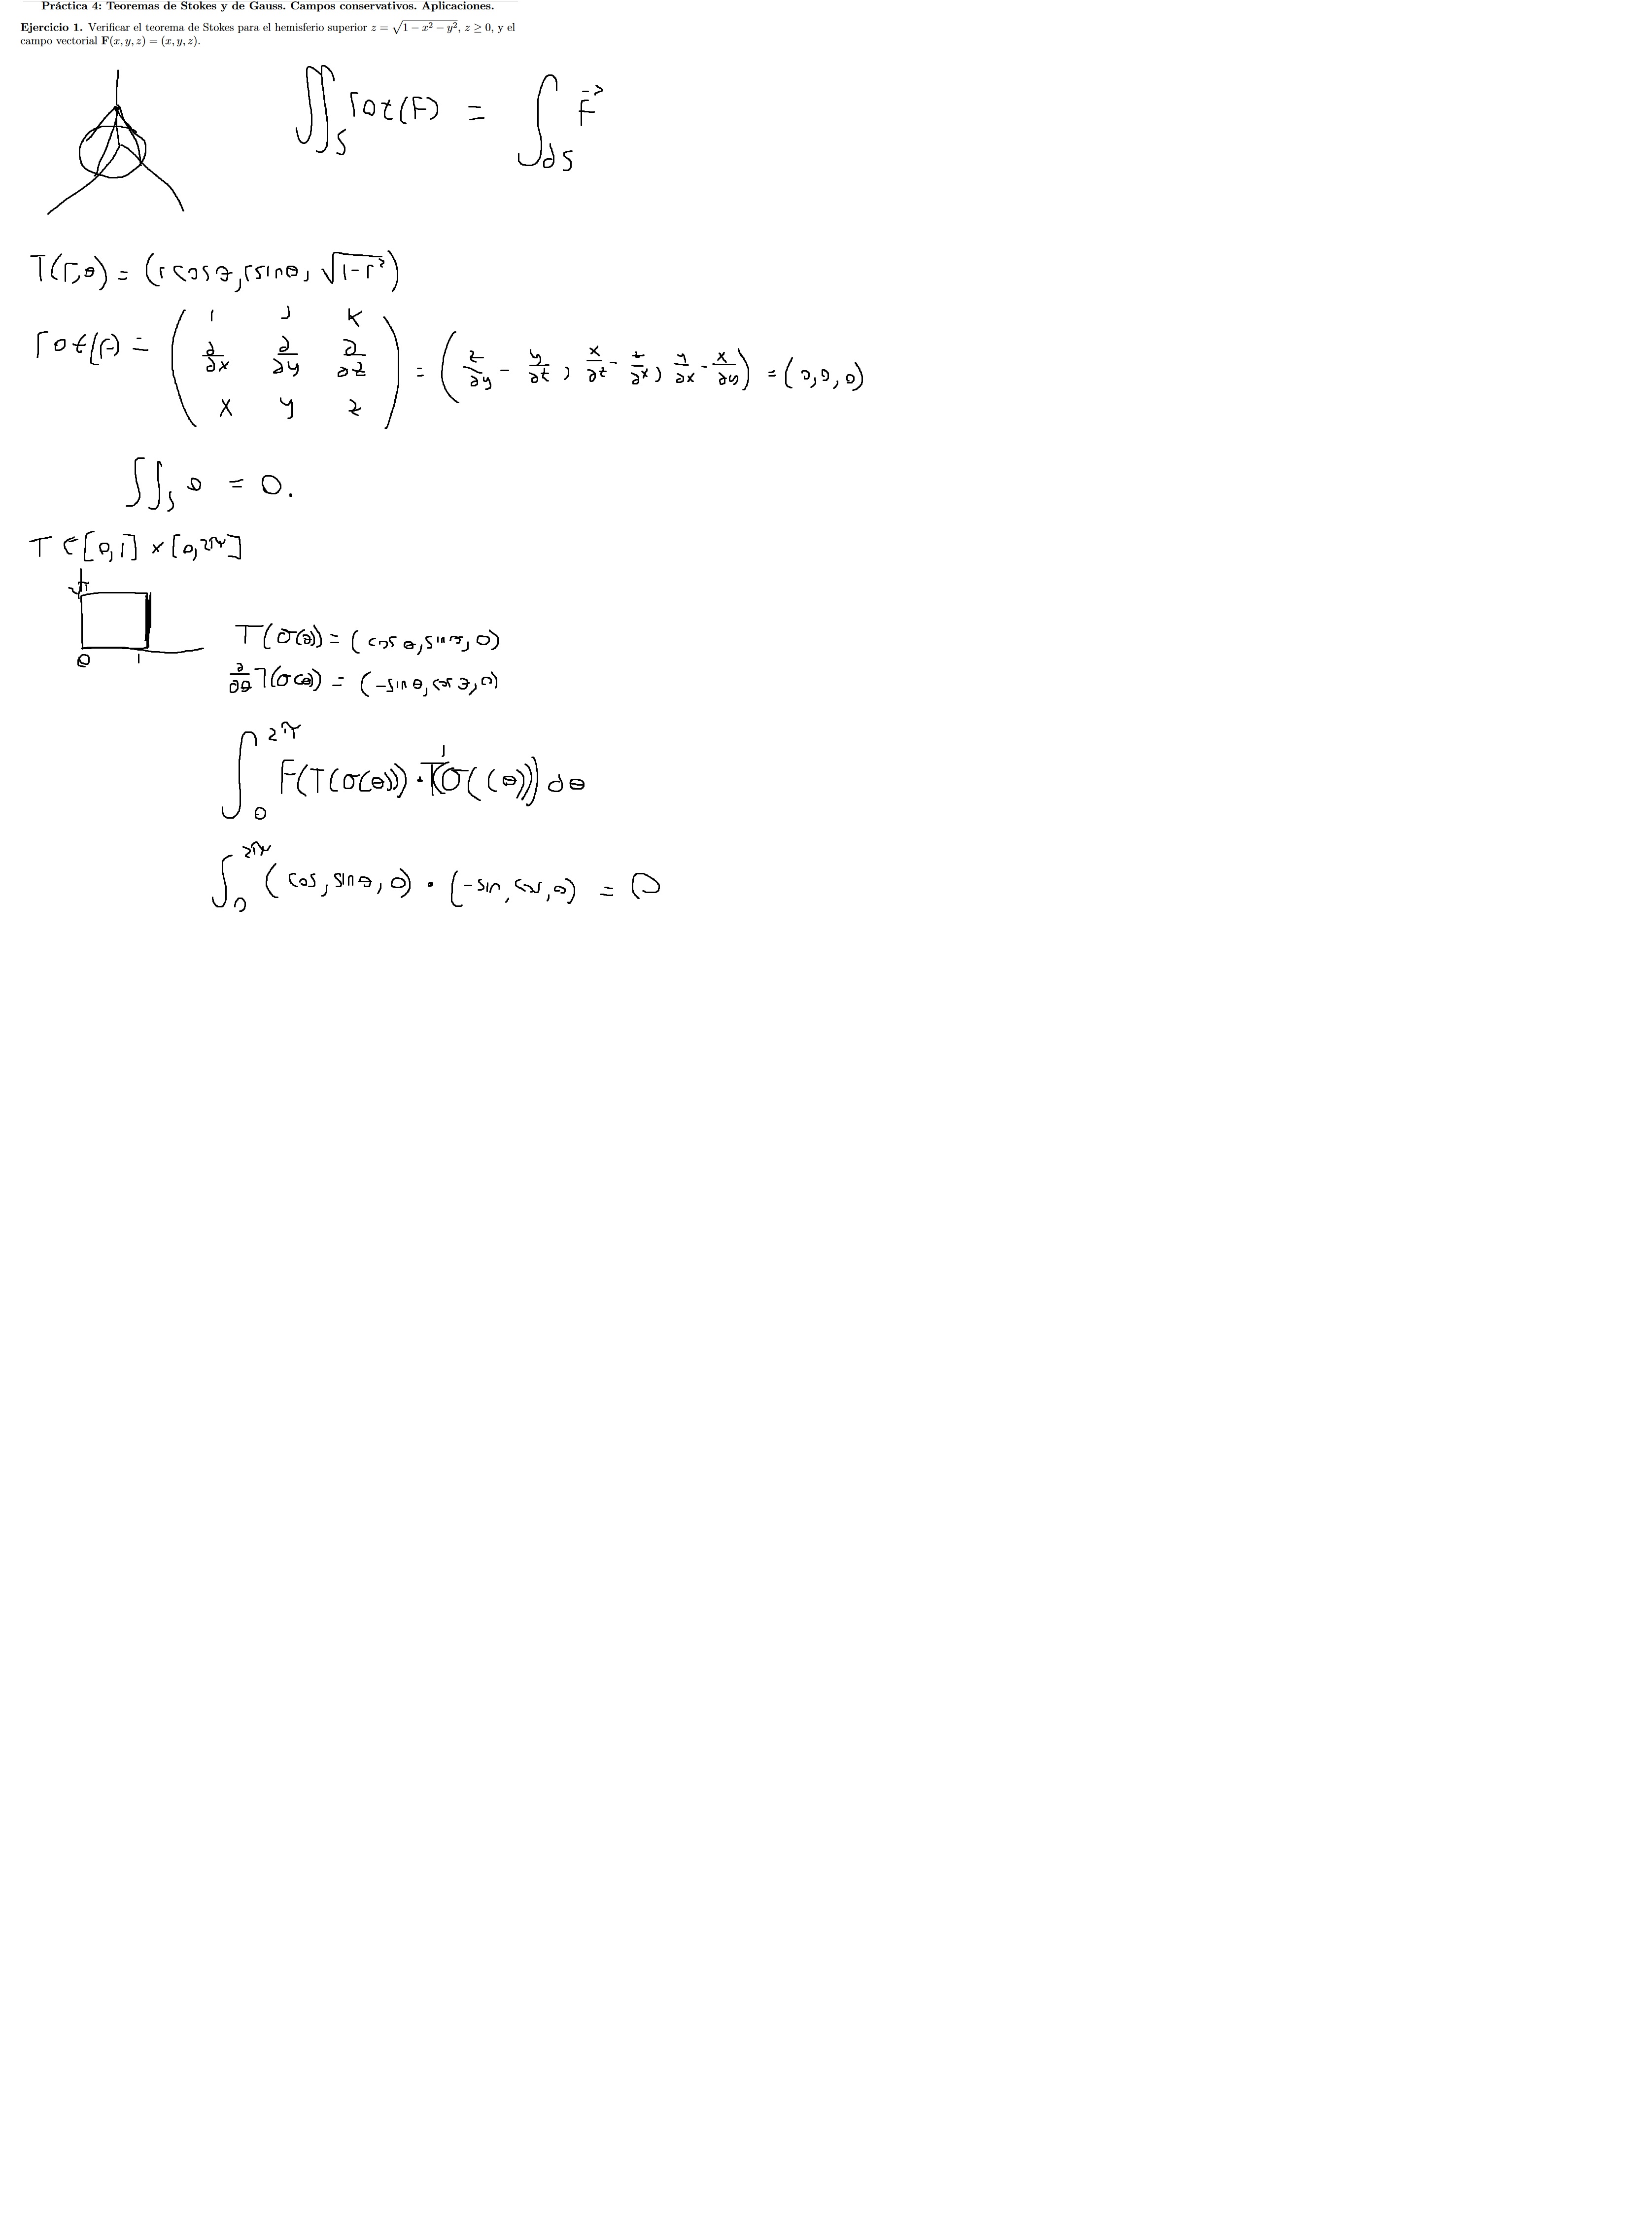 Práctica 4: Teoremas de Stokes y de Gauss. Campos conservativos. Aplicaciones.
Ejercicio 1. Verificar el teorema de Stokes para el hemisferio superior z = √(1 − x² − y²), z ≥ 0, y el
campo vectorial F(x, y, z) = (x, y, z).
∬_S rot(F) = ∫_∂S F⃗
T(r,θ) = (r cos θ, r sin θ, √(1-r²))
rot(F) = ( i j k
∂/∂x ∂/∂y ∂/∂z
x y z ) = (z/∂y - y/∂z, x/∂z - z/∂x, y/∂x - x/∂y) = (0,0,0)
∬_S 0 = 0.
T ∈ [0,1] × [0,2π]
2π
0 1
T(σ(θ)) = (cos θ, sin θ, 0)
∂/∂θ T(σ(θ)) = (-sin θ, cos θ, 0)
∫_0^2π F(T(σ(θ))) · T'(σ((θ))) dθ
∫_0^2π (cos, sin θ, 0) · (-sin, cos, 0) = 0